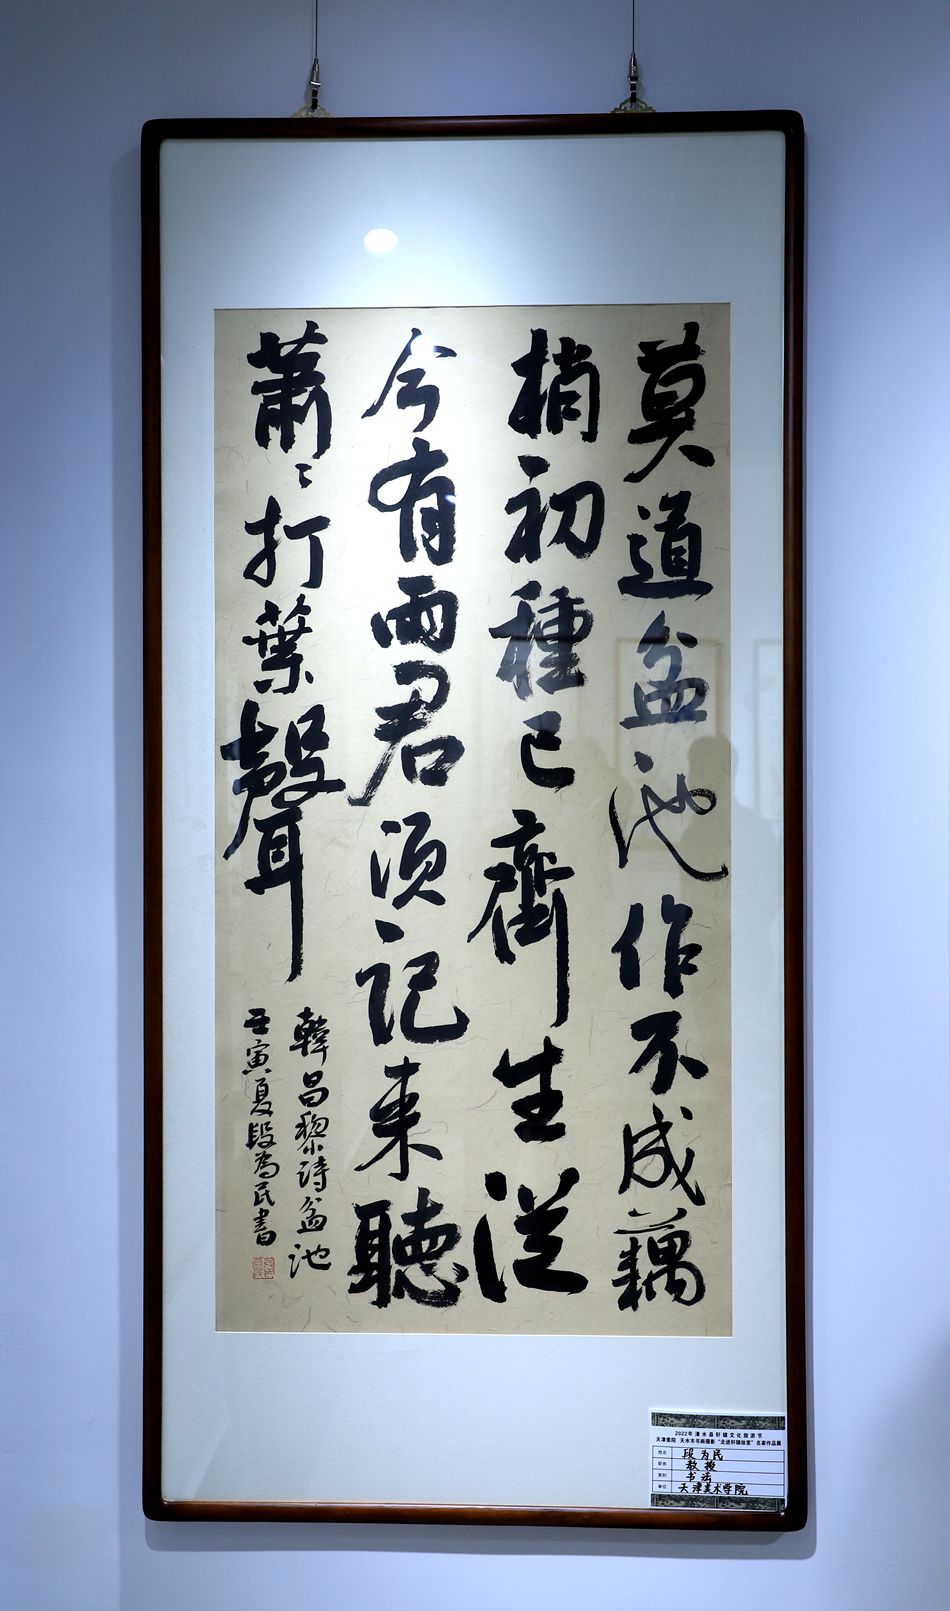 莫道盆池作不成藕
梢初種已齊生從
今有雨君須記来聽
蕭〻打葉聲
韓昌黎詩盆池
壬寅夏段為民書
2022年清水县轩辕文化旅游节
天津美院 天水市书画摄影“走进轩辕故里”名家作品展
姓名 段为民
职务 教授
类别 书法
单位 天津美术学院